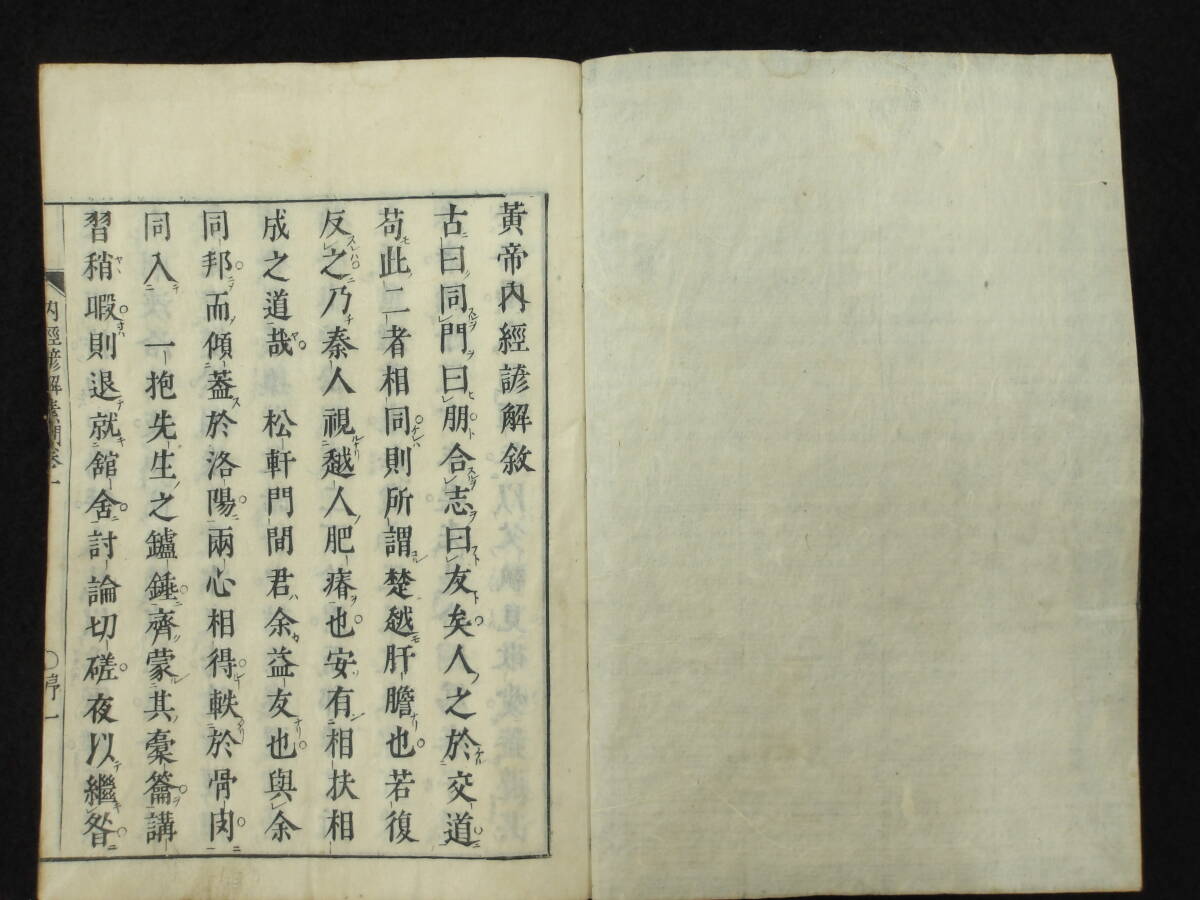 黃帝內經諺解敘
古曰同門曰朋合志曰友矣人之於交道
苟此二者相同則所謂楚越肝膽也若復
反之乃秦人視越人肥瘠也安有相扶相
成之道哉 松軒門間君余益友也與余
同邦而傾蓋於洛陽兩心相得軼於骨肉
同入 一抱先生之鑪錘齊蒙其橐籥講
習稍暇則退就館舍討論切磋夜以繼晷
內經諺解素問卷一 〇序一